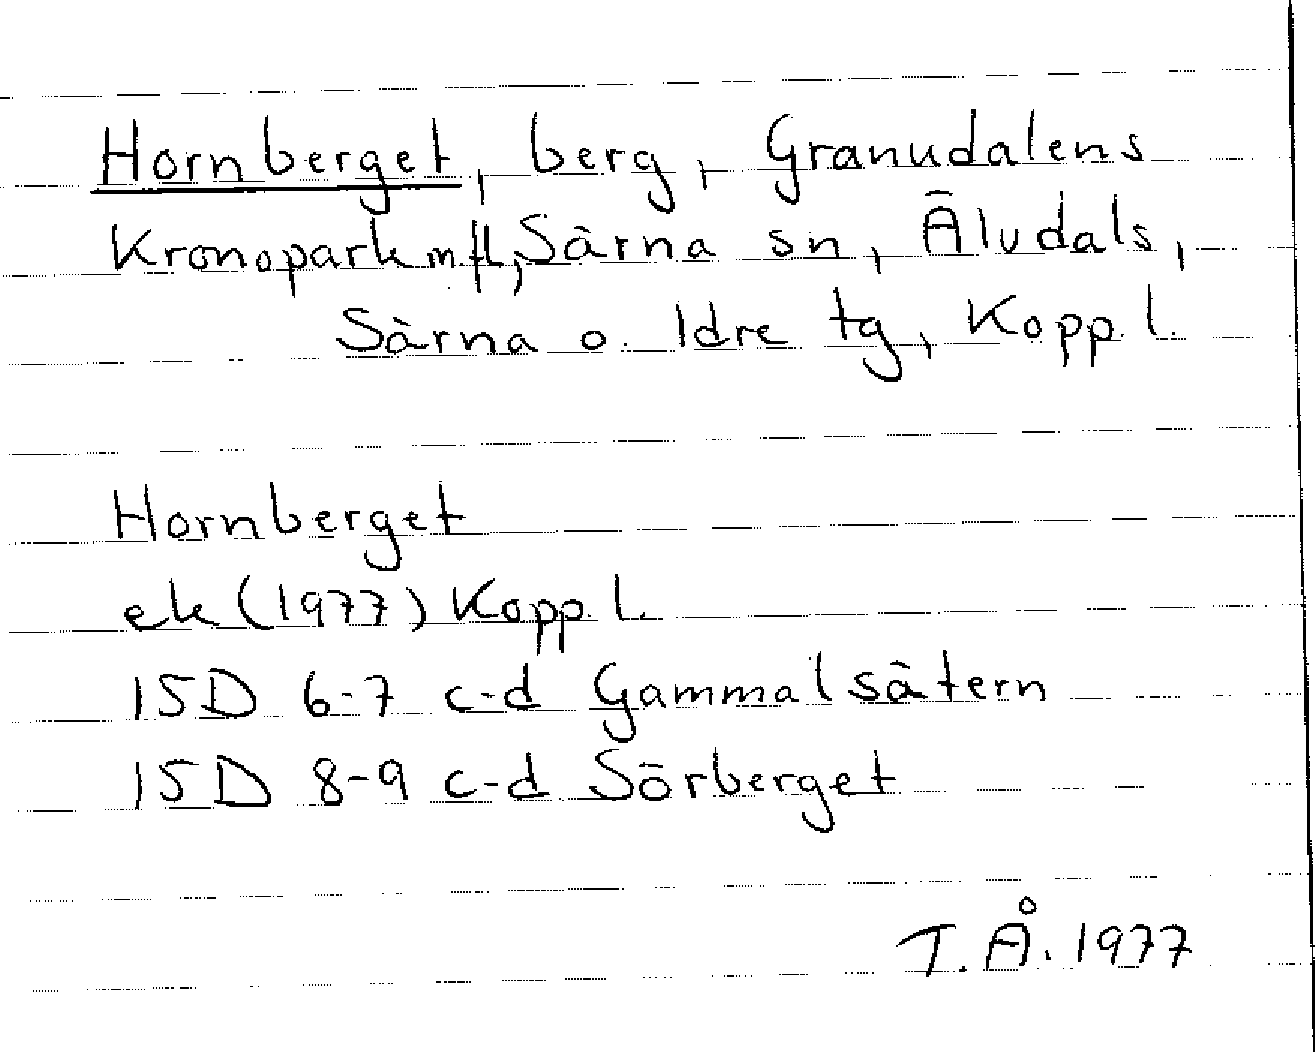 Hornberget, berg, Granudalens
Kronopark mfl, Särna sn, Älvdals,
Särna o. Idre tg, Kopp. l.
Hornberget
ek (1977) Kopp. l.
15D 6-7 c-d Gammalsätern
15D 8-9 c-d Sörberget
T. Å. 1977